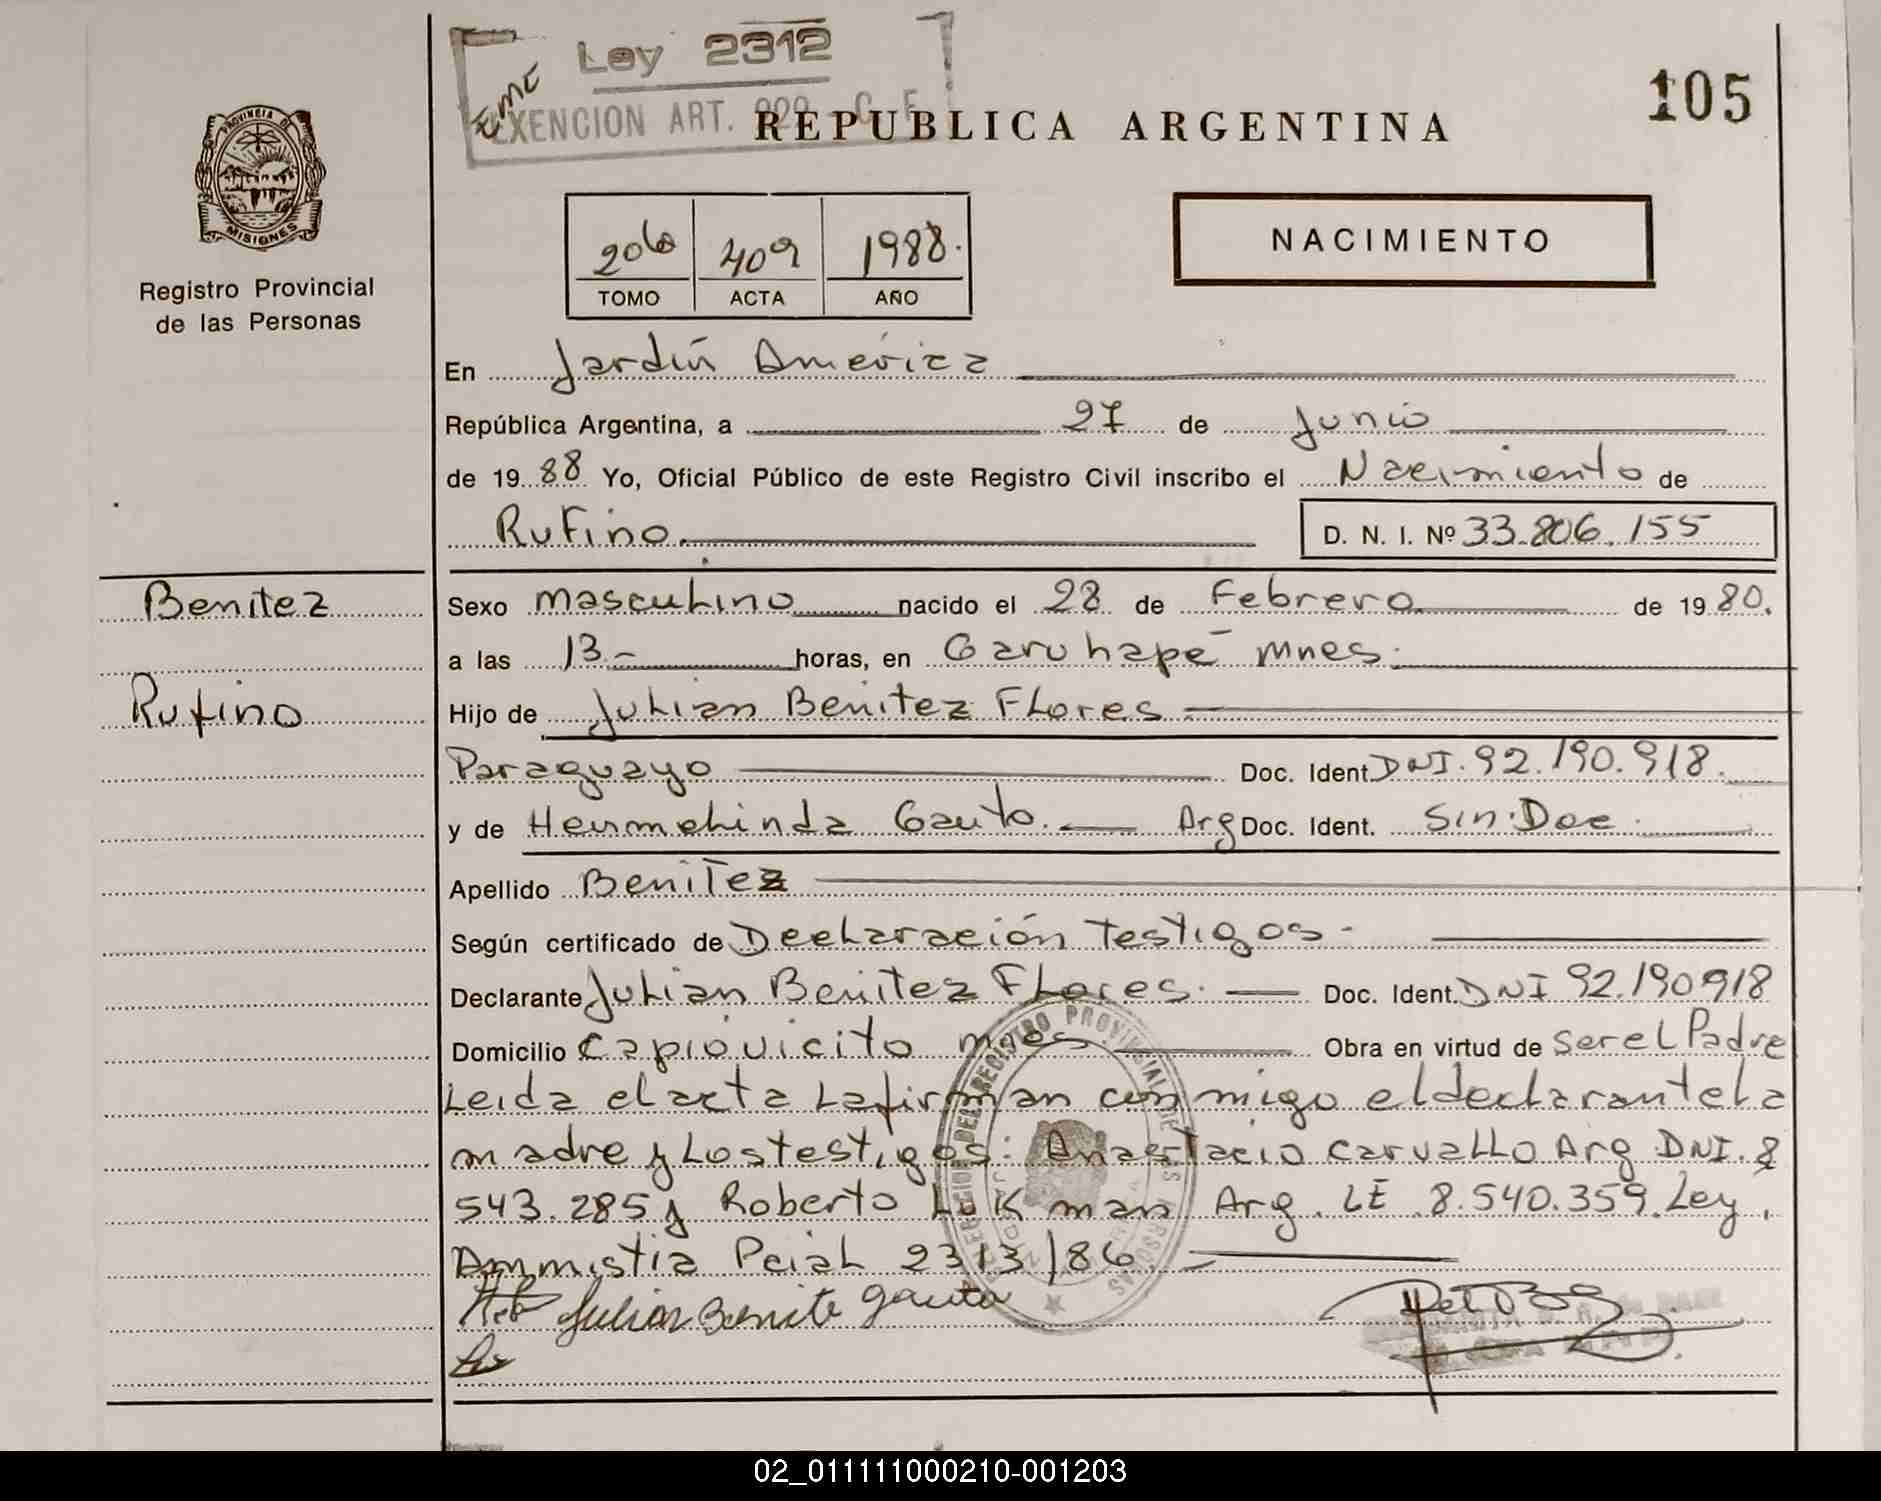 Ley 2312
EXENCION ART.
105
REPUBLICA ARGENTINA
PROVINCIA DE
MISIONES
Registro Provincial
de las Personas
206 409 1988.
TOMO ACTA AÑO
NACIMIENTO
En Jardín América
República Argentina, a 27 de Junio
de 19 88 Yo, Oficial Público de este Registro Civil inscribo el Nacimiento de
Rufino D. N. I. Nº 33.806.155
Benitez
Rufino
Sexo masculino nacido el 28 de Febrero de 19 80.
a las 13.- horas, en Garuhapé mnes.
Hijo de Julian Benitez Flores
Paraguayo Doc. Ident DNI. 92.190.918.
y de Hermelinda Gauto. Arg Doc. Ident. Sin Doc.
Apellido Benitez
Según certificado de Declaración Testigos -
Declarante Julian Benitez Flores. Doc. Ident. DNI 92.190918
Domicilio Capiovicito mnes Obra en virtud de ser el Padre
Leida el acta La firman conmigo el declarante La
madre y Los testigos: Anastacio Carvallo Arg DNI. 8
543.285 y Roberto Lukman Arg. LE 8.540.359. Ley,
Ammistia Pcial 2313/86
Julian Benite gauta
02_011111000210-001203